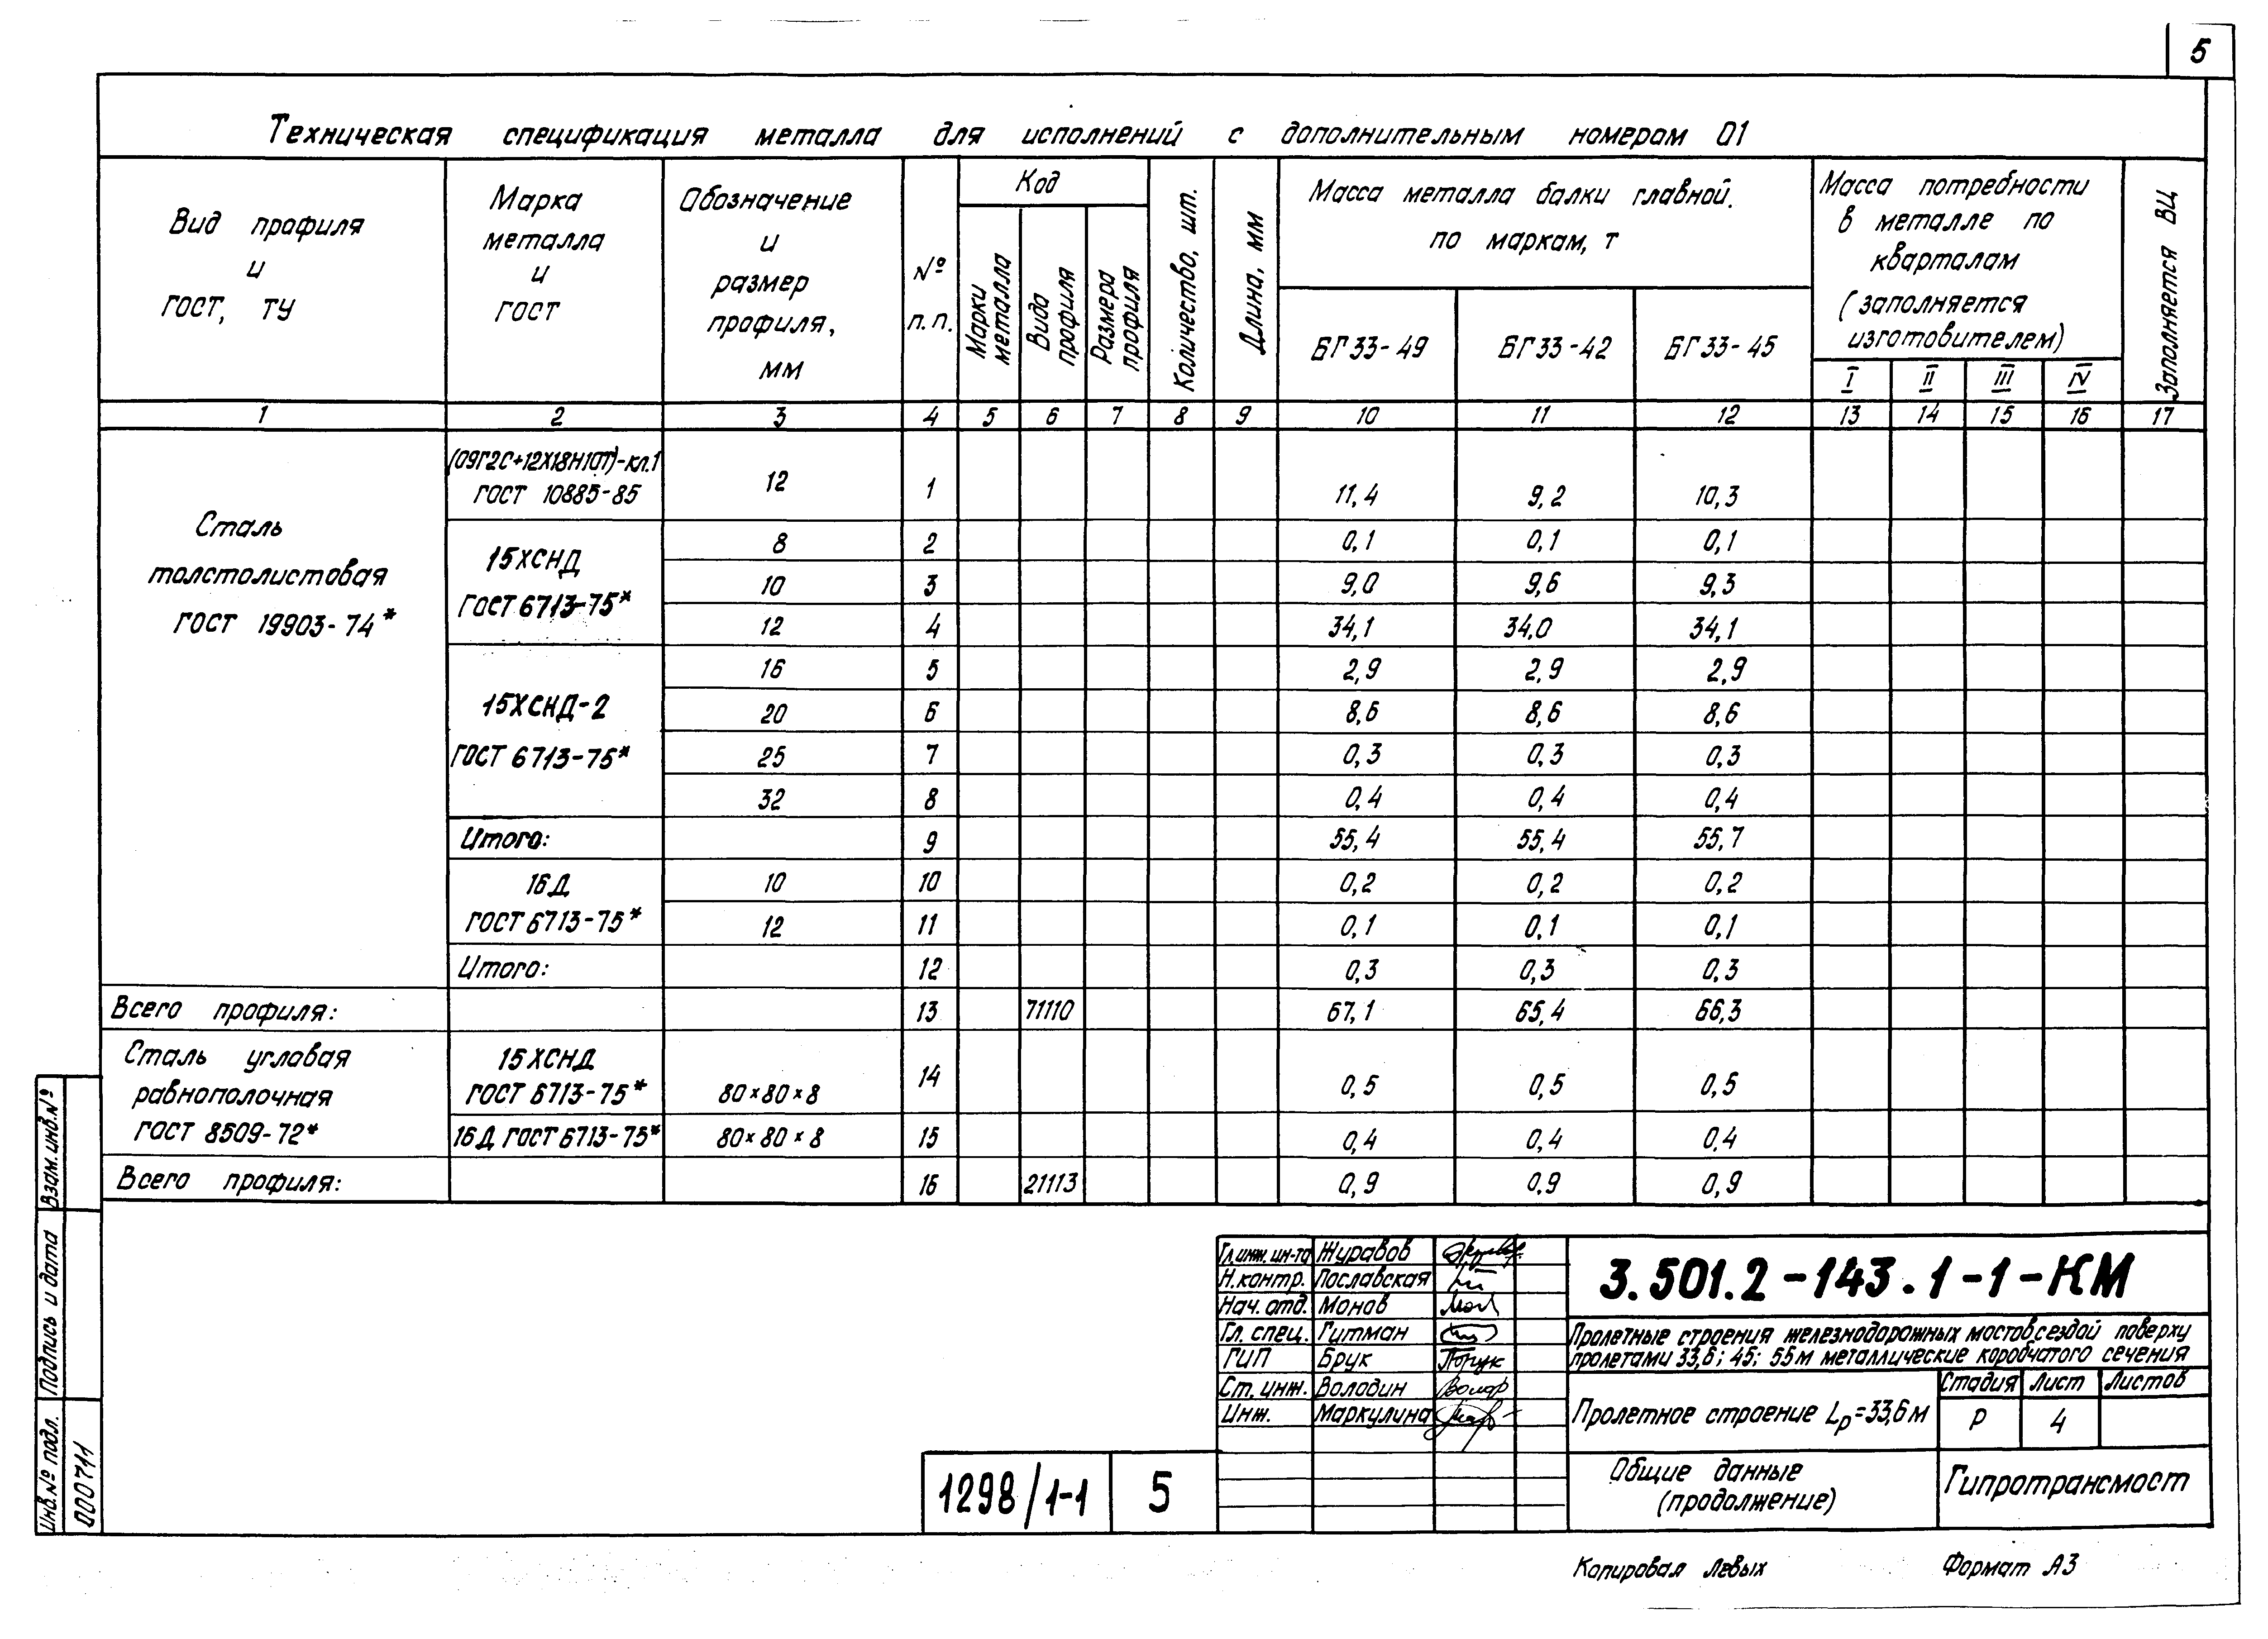 5
Техническая спецификация металла для исполнений с дополнительным номерам 01
Вид профиля и ГОСТ, ТУ
Марка металла и ГОСТ
Обозначение и размер профиля, мм
№ п.п.
Код
Марки металла
Вида профиля
Размера профиля
Количество, шт.
Длина, мм
Масса металла балки главной. по маркам, т
БГ33-49 БГ33-42 БГ33-45
Масса потребности в металле по кварталам (заполняется изготовителем)
I II III IV
Заполняется ВЦ
1 2 3 4 5 6 7 8 9 10 11 12 13 14 15 16 17
Сталь толстолистовая ГОСТ 19903-74*
(09Г2С+12Х18Н10Т)-кл.1 ГОСТ 10885-85 12 1 11,4 9,2 10,3
15ХСНД ГОСТ 6713-75*
8 2 0,1 0,1 0,1
10 3 9,0 9,6 9,3
12 4 34,1 34,0 34,1
15ХСНД-2 ГОСТ 6713-75*
16 5 2,9 2,9 2,9
20 6 8,6 8,6 8,6
25 7 0,3 0,3 0,3
32 8 0,4 0,4 0,4
Итого: 9 55,4 55,4 55,7
16Д ГОСТ 6713-75*
10 10 0,2 0,2 0,2
12 11 0,1 0,1 0,1
Итого: 12 0,3 0,3 0,3
Всего профиля: 13 71110 67,1 65,4 66,3
Сталь угловая равнополочная ГОСТ 8509-72*
15ХСНД ГОСТ 6713-75* 80×80×8 14 0,5 0,5 0,5
16Д ГОСТ 6713-75* 80×80×8 15 0,4 0,4 0,4
Всего профиля: 16 21113 0,9 0,9 0,9
Взам.инв.№
Подпись и дата
Инв.№ подл.
000711
1298/1-1 5
Гл.инж.ин-та Журавов
Н.контр. Пославская
Нач.отд. Монов
Гл. спец. Гитман
ГИП Брук
Ст. инж. Володин
Инж. Маркулина
3.501.2-143.1-1-КМ
Пролетные строения железнодорожных мостов с ездой поверху
пролетами 33,6; 45; 55м металлические коробчатого сечения
Пролетное строение Lр=33,6м
Стадия Лист Листов
Р 4
Общие данные
(продолжение)
Гипротрансмост
Копировал Левых Формат А3